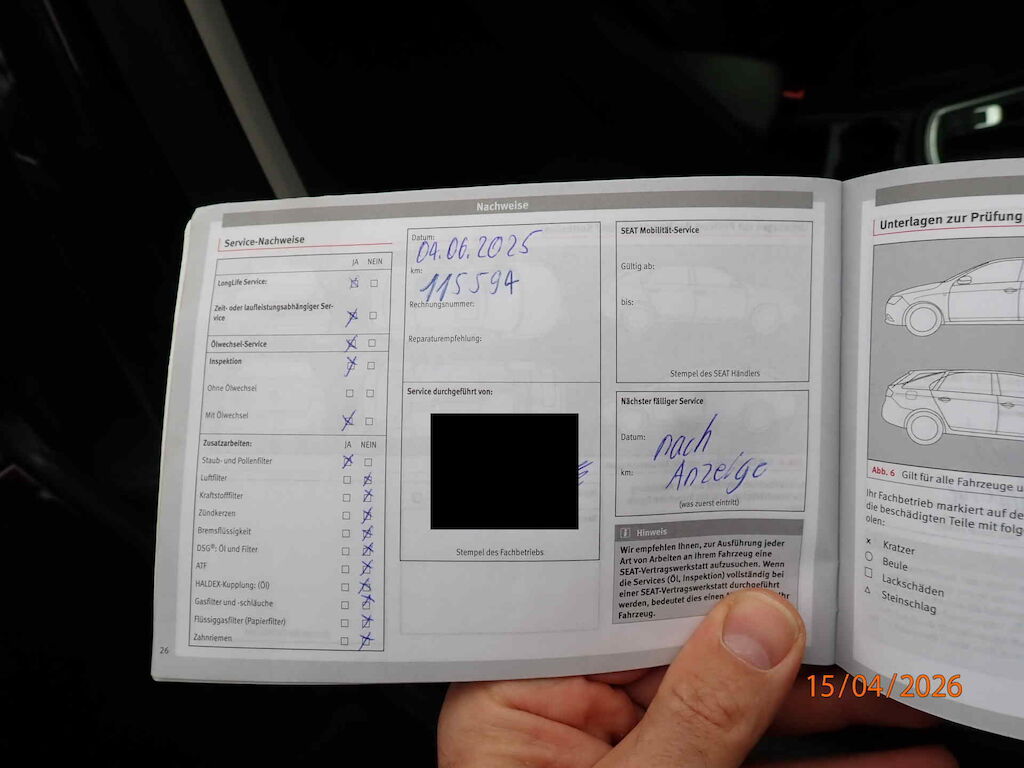 Nachweise
Service-Nachweise
JA NEIN
LongLife Service:
Zeit- oder laufleistungsabhängiger Ser-
vice
Ölwechsel-Service
Inspektion
Ohne Ölwechsel
Mit Ölwechsel
Zusatzarbeiten: JA NEIN
Staub- und Pollenfilter
Luftfilter
Kraftstofffilter
Zündkerzen
Bremsflüssigkeit
DSG®: Öl und Filter
ATF
HALDEX-Kupplung: (Öl)
Gasfilter und -schläuche
Flüssiggasfilter (Papierfilter)
Zahnriemen
26
Datum:
04.06.2025
km:
115594
Rechnungsnummer:
Reparaturempfehlung:
Service durchgeführt von:
Stempel des Fachbetriebs
SEAT Mobilität-Service
Gültig ab:
bis:
Stempel des SEAT Händlers
Nächster fälliger Service
Datum: nach
km: Anzeige
(was zuerst eintritt)
Hinweis
Wir empfehlen Ihnen, zur Ausführung jeder
Art von Arbeiten an Ihrem Fahrzeug eine
SEAT-Vertragswerkstatt aufzusuchen. Wenn
die Services (Öl, Inspektion) vollständig bei
einer SEAT-Vertragswerkstatt durchgeführt
werden, bedeutet dies einen
Fahrzeug.
Unterlagen zur Prüfung
Abb. 6 Gilt für alle Fahrzeuge
Ihr Fachbetrieb markiert auf
die beschädigten Teile mit
olen:
× Kratzer
○ Beule
□ Lackschäden
△ Steinschlag
15/04/2026